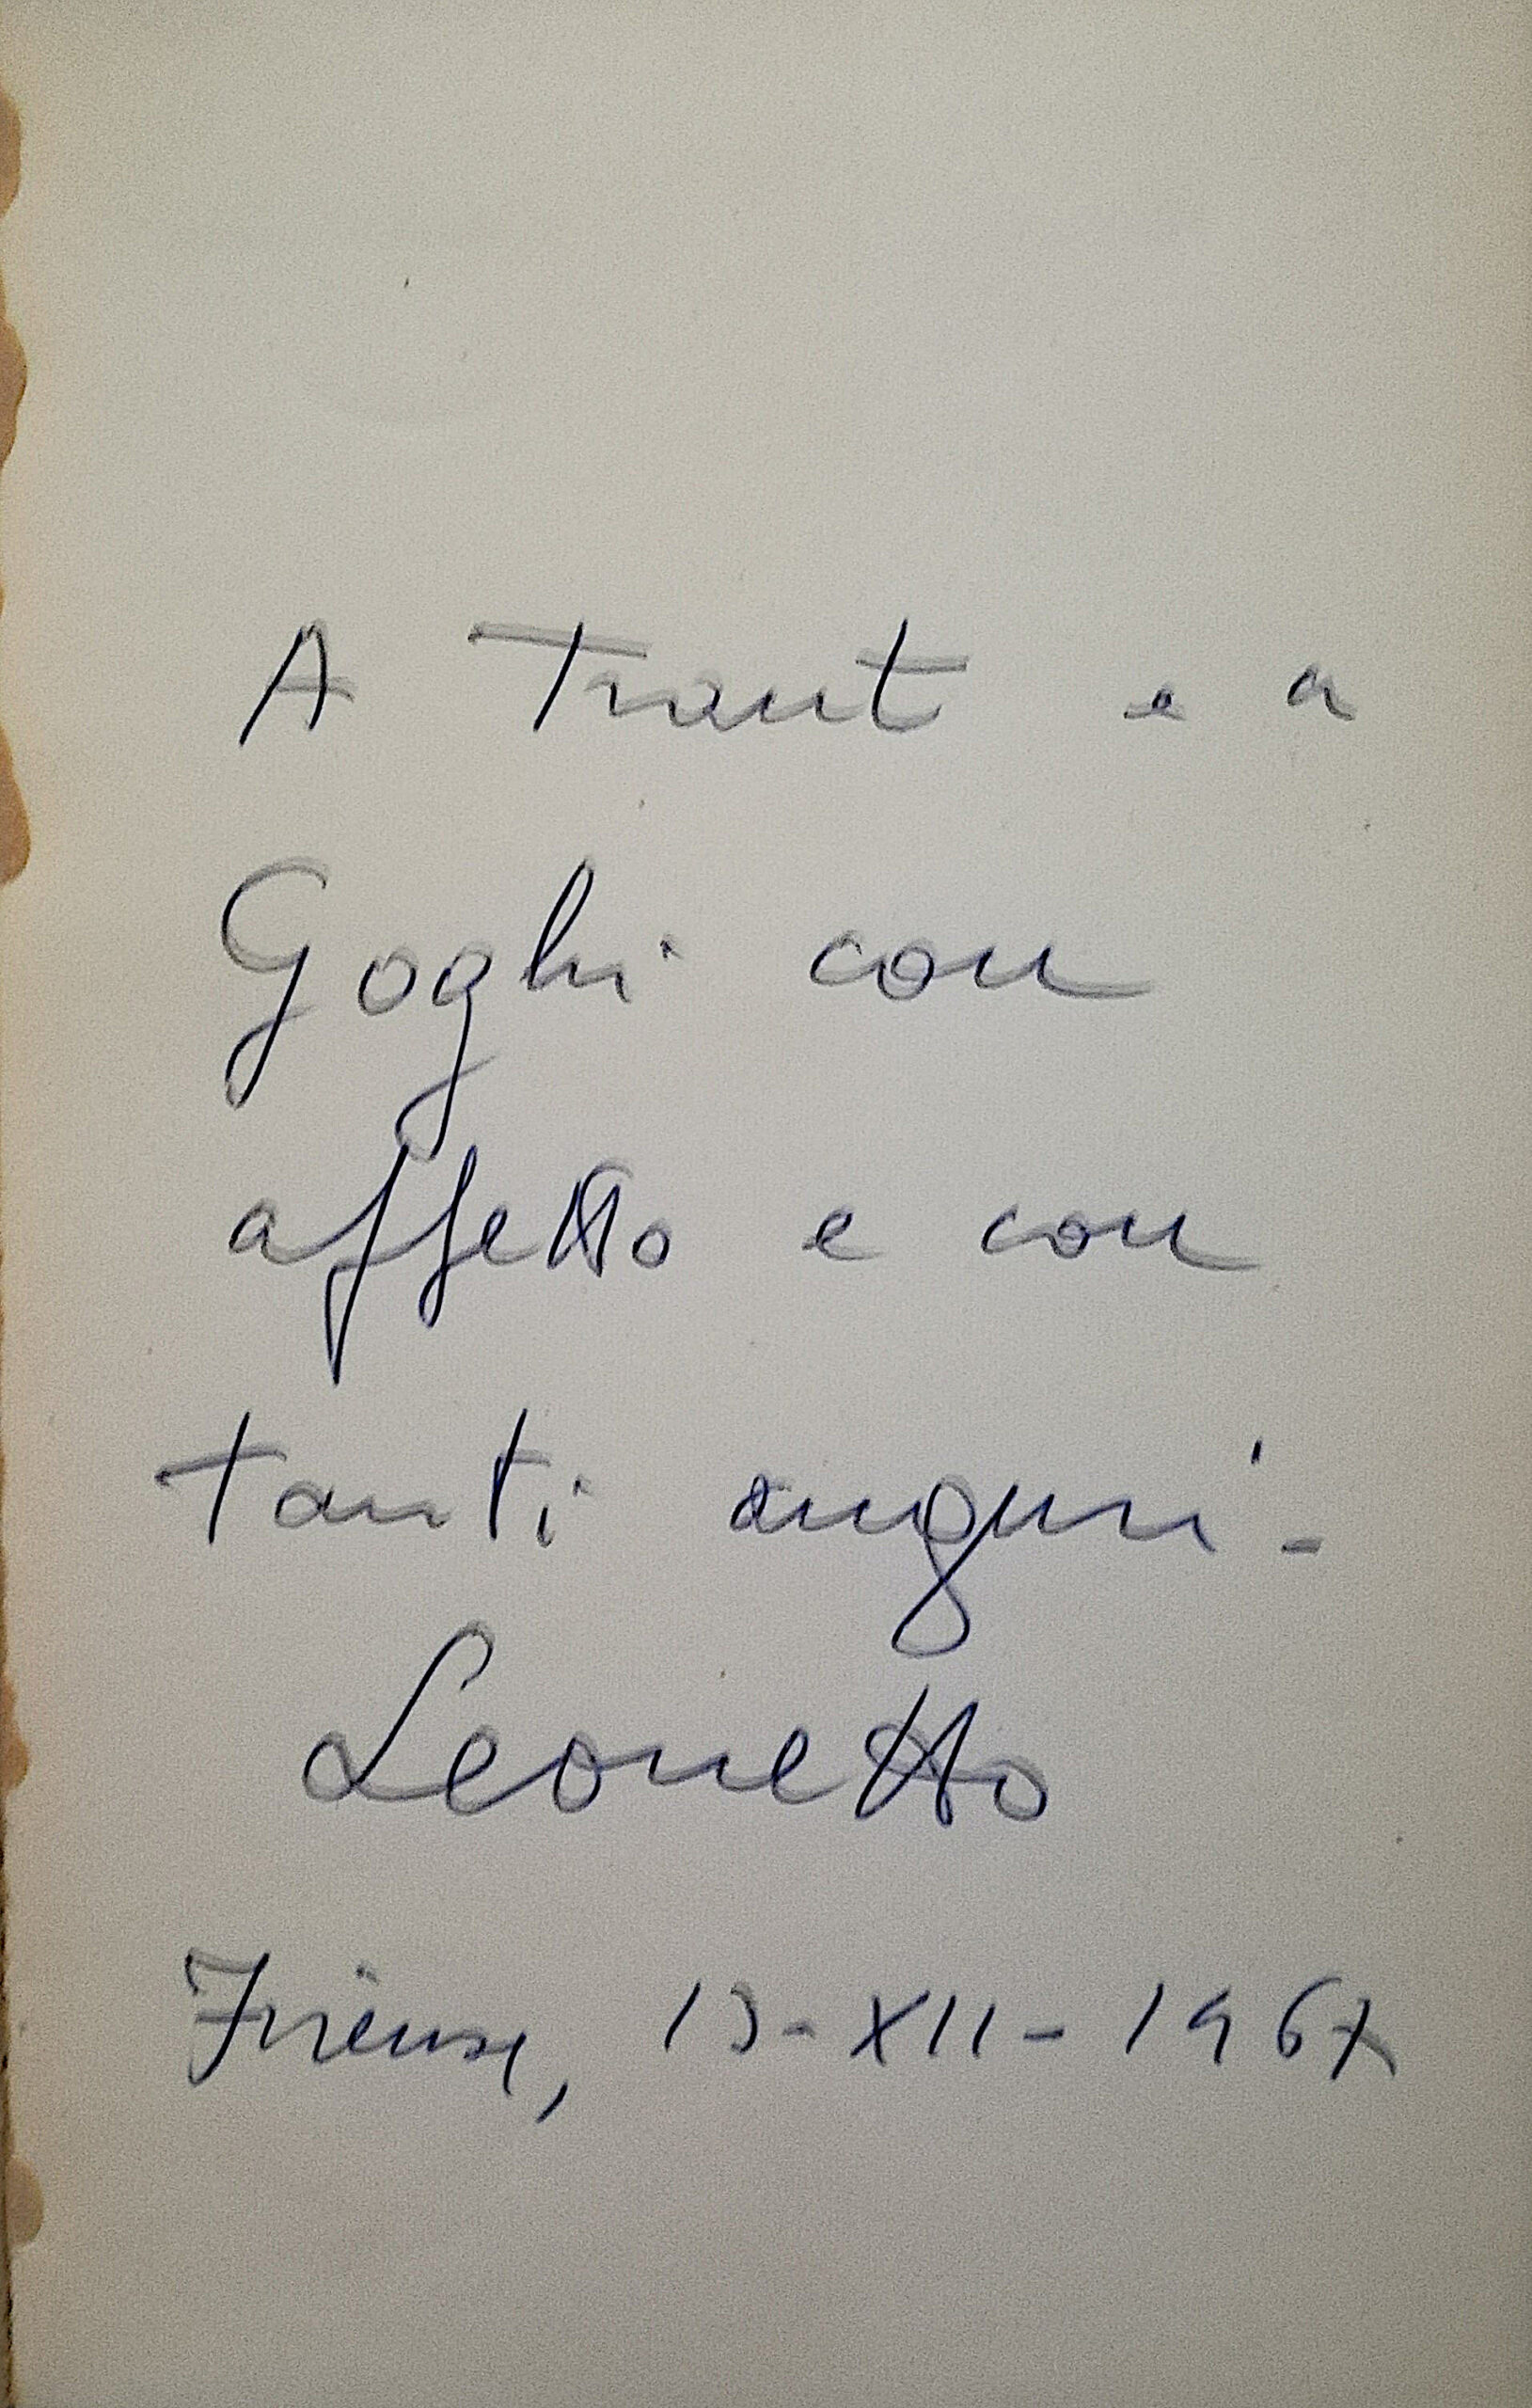 A Traut e a
Goghi con
affetto e con
tanti auguri -
Leonetto
Firenze, 13-XII-1967